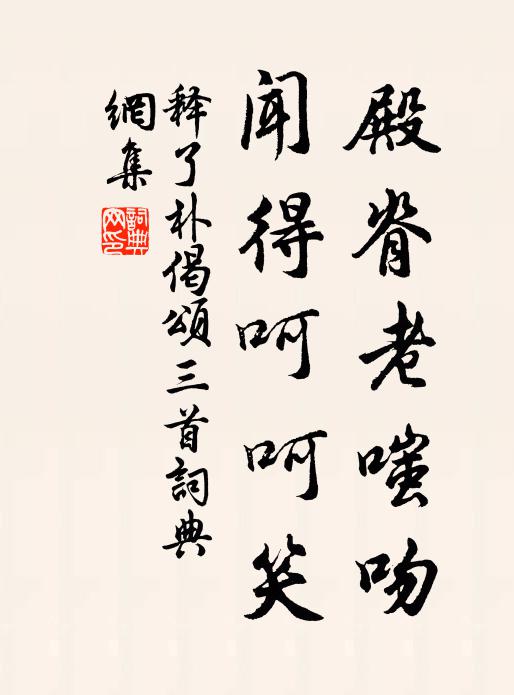 殿脊老嗤吻
闻得呵呵笑
释了朴偈頌三首詞典
網集
詞典
网印